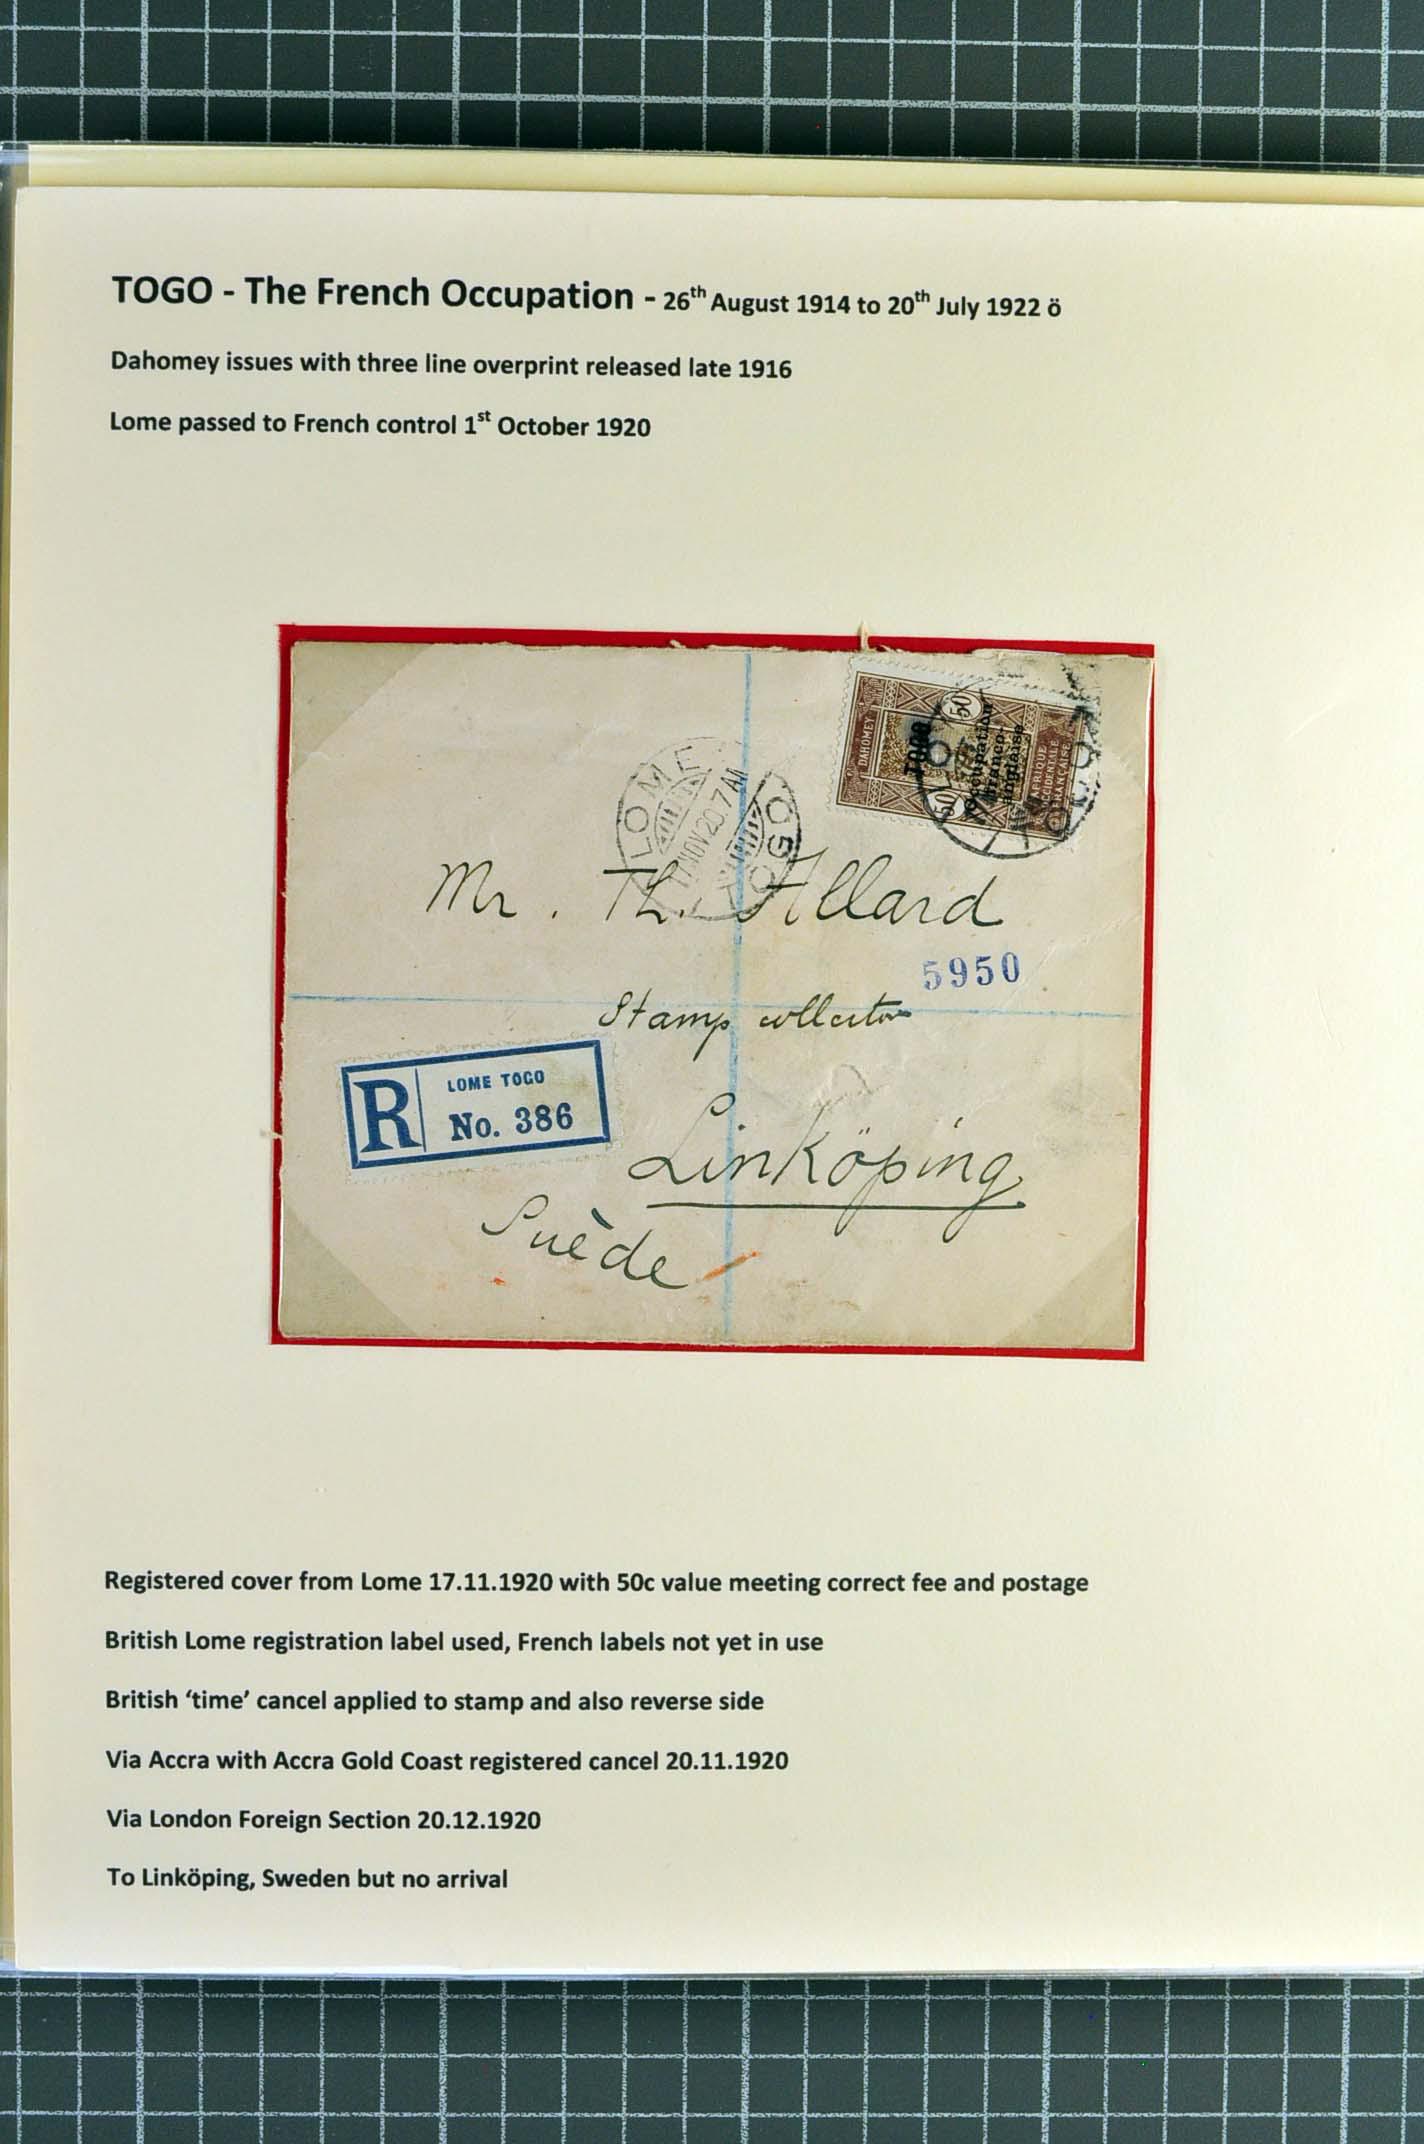 TOGO - The French Occupation - 26th August 1914 to 20th July 1922 ö
Dahomey issues with three line overprint released late 1916
Lome passed to French control 1st October 1920
DAHOMEY
50
50
TOGO
Occupation
franco-
anglaise
AFRIQUE
OCCIDENTALE
FRANÇAISE
LOME
17 NOV 20. 7 AM
TOGO
Mr. Th. Allard
5950
Stamp collector
R
LOME TOGO
No. 386
Linköping
Suède
Registered cover from Lome 17.11.1920 with 50c value meeting correct fee and postage
British Lome registration label used, French labels not yet in use
British ‘time’ cancel applied to stamp and also reverse side
Via Accra with Accra Gold Coast registered cancel 20.11.1920
Via London Foreign Section 20.12.1920
To Linköping, Sweden but no arrival